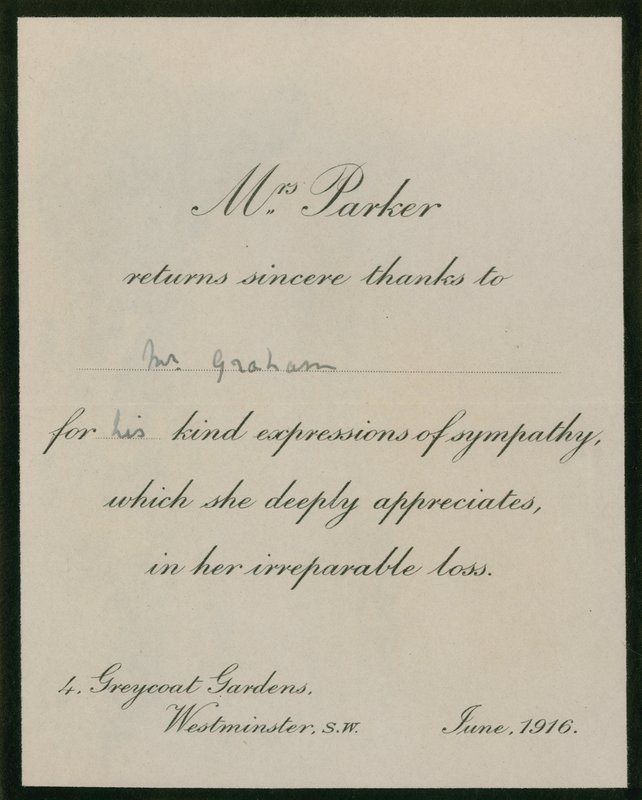 Mrs Parker
returns sincere thanks to
Mr. Graham
for his kind expressions of sympathy,
which she deeply appreciates,
in her irreparable loss.
4, Greycoat Gardens,
Westminster, S.W. June, 1916.